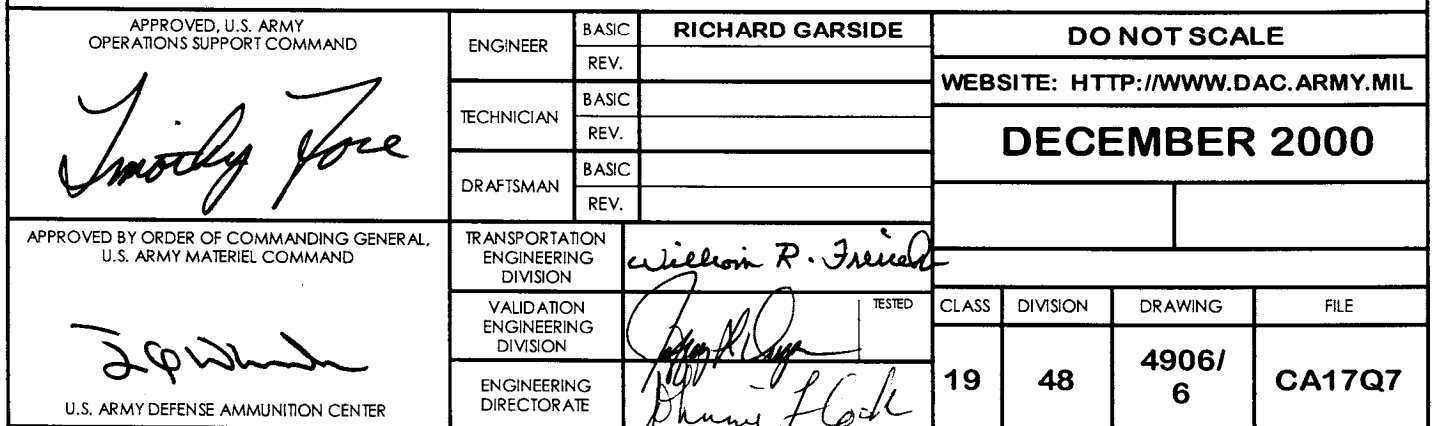 APPROVED, U.S. ARMY
OPERATIONS SUPPORT COMMAND
Timothy Fore
APPROVED BY ORDER OF COMMANDING GENERAL,
U.S. ARMY MATERIEL COMMAND
U.S. ARMY DEFENSE AMMUNITION CENTER
ENGINEER
BASIC
RICHARD GARSIDE
REV.
TECHNICIAN
BASIC
REV.
DRAFTSMAN
BASIC
REV.
TRANSPORTATION
ENGINEERING
DIVISION
William R.
VALIDATION
ENGINEERING
DIVISION
TESTED
ENGINEERING
DIRECTORATE
DO NOT SCALE
WEBSITE: HTTP://WWW.DAC.ARMY.MIL
DECEMBER 2000
CLASS DIVISION DRAWING FILE
19 48 4906/
6 CA17Q7